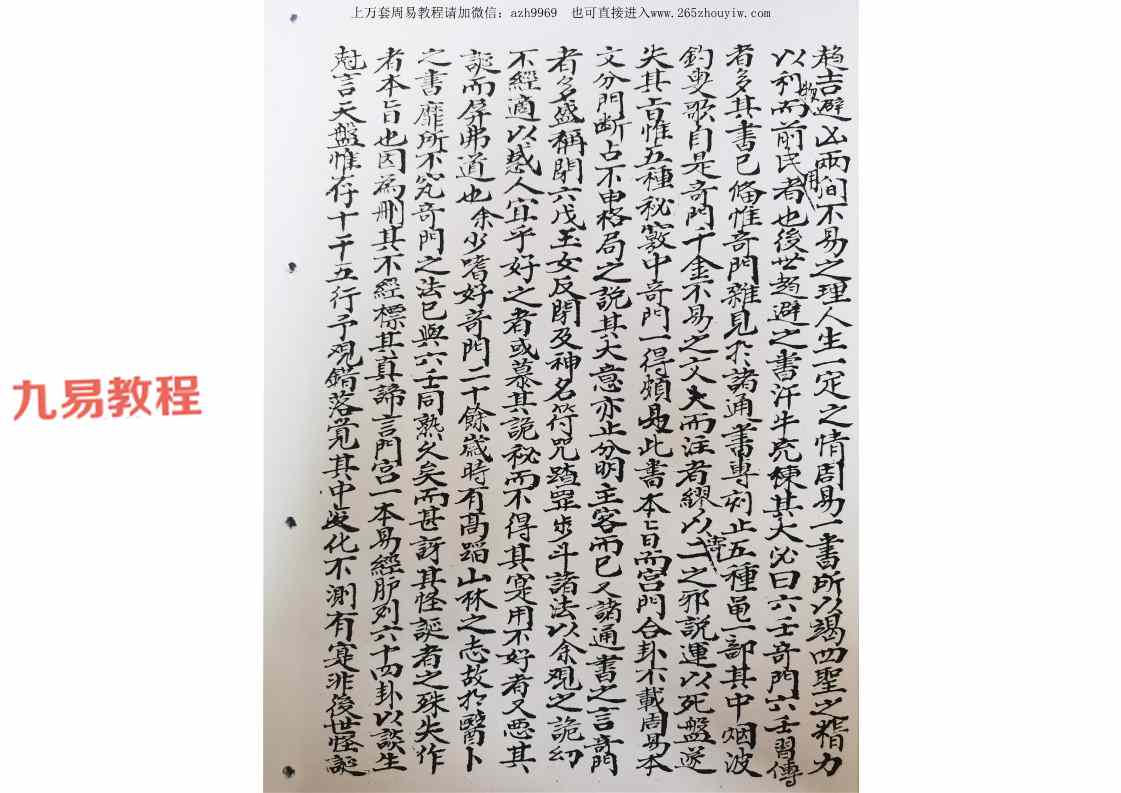 上万套周易教程请加微信：azh9969　也可直接进入www.265zhouyiw.com
九易教程
趋吉避凶兩间不易之理人生一定之情周易一書所以竭四聖之精力
以利物而前民用者也後世趋避之書汗牛充棟其大必曰六壬奇門六壬習傳
者多其書已俻惟奇門雜見於諸通書專刻止五種黾一部其中烟波
釣叟歌自是奇門千金不易之文夫而注者繆以之邪說運以死盤遂
失其旨惟五種秘竅中奇門一得頗是此書本旨而宫門合卦不載周易本
文分門断占不申格局之説其大意亦止分明主客而已又諸通書之言奇門
者多盛稱閉六戊玉女反閉及神名符咒踏罡步斗諸法以余观之詭幻
不經適以惑人宜乎好之者或慕其詭秘而不得其寔用不好者又悪其
誕而屏弗道也余少嗜好奇門二十餘歲時有高蹈山林之志故於醫卜
之書靡所不究奇門之法已與六壬同熟久矣而甚訝其怪誕者之殊失作
者本旨也因為删其不經標其真諦言門宫一本易經胪列六十四卦以談生
尅言天盤惟存十干五行予观錯落覚其中变化不測有寔非後世怪誕